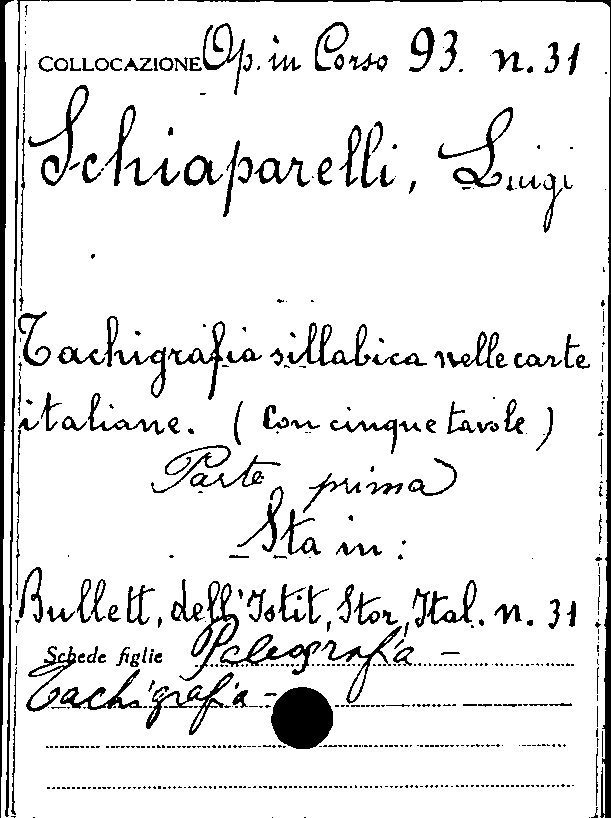 COLLOCAZIONE Op. in Corso 93. n. 31
Schiaparelli, Luigi
Tachigrafia sillabica nelle carte
italiane. (Con cinque tavole)
Parte prima
Sta in:
Bullett, dell'Istit, Stor, Ital. n. 31
Schede figlie Paleografia -
Tachigrafia -